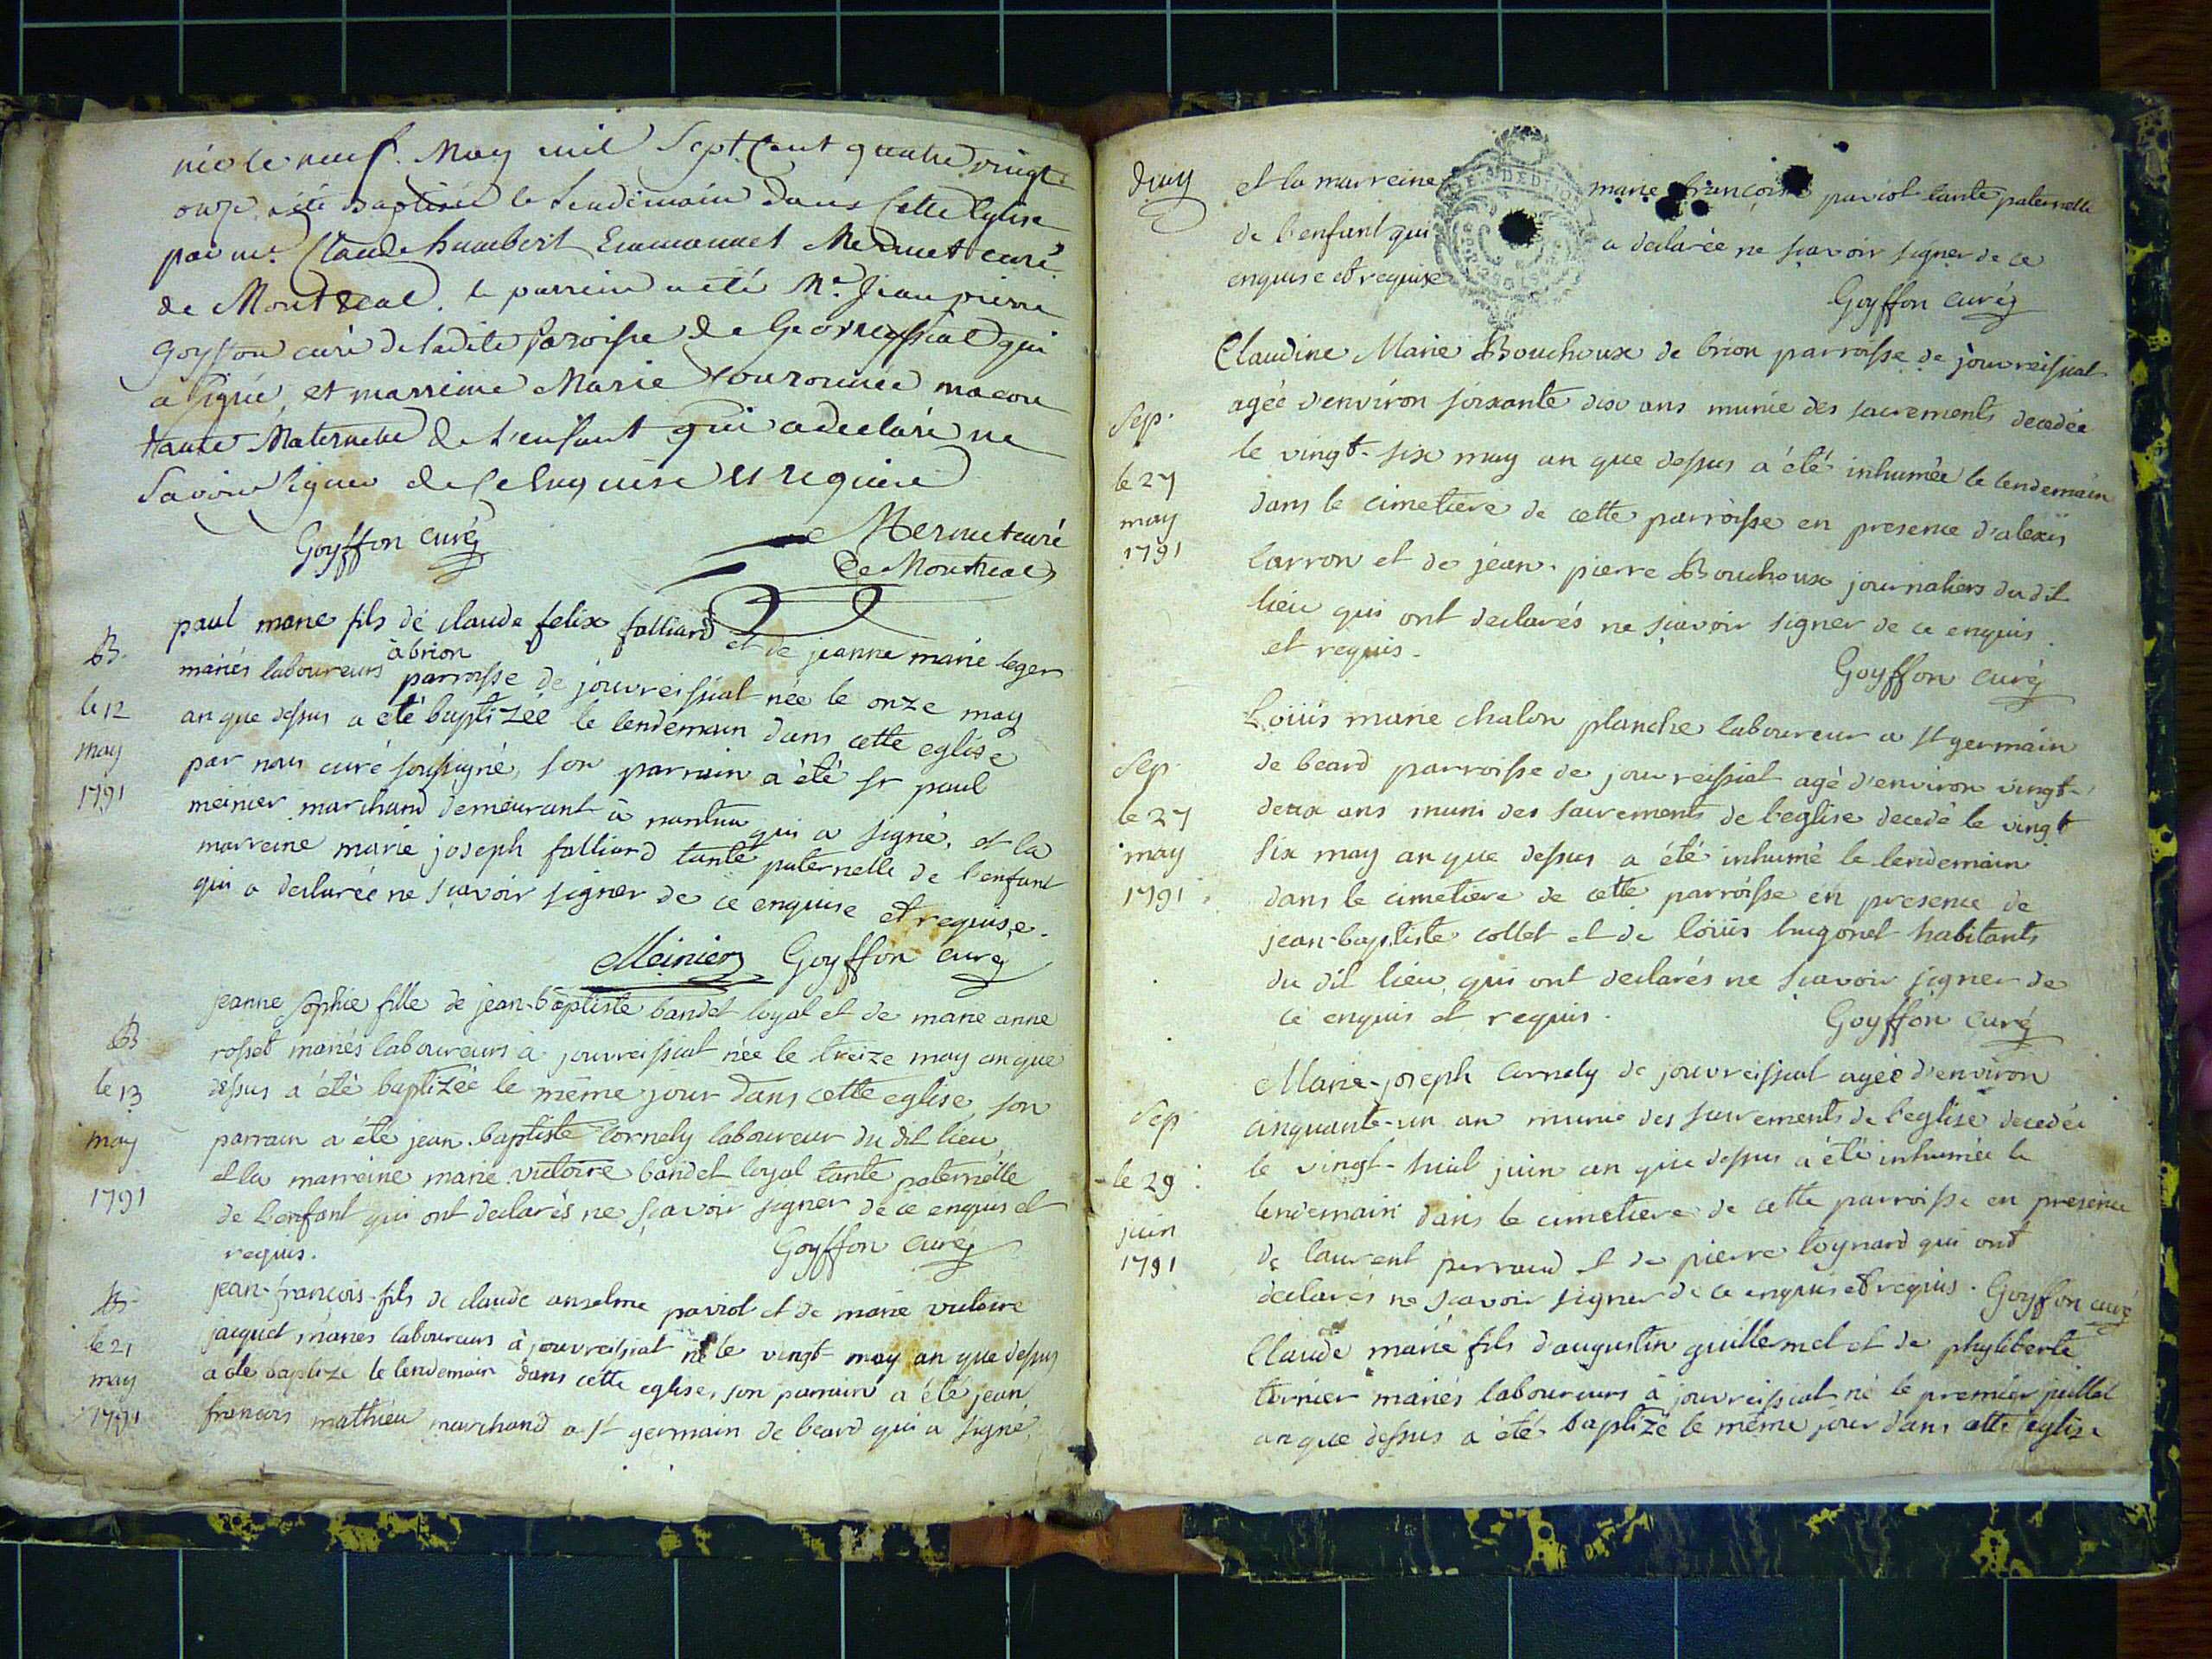 née le neuf May mil Sept Cent quatre vingt
onze a été Baptisée le Lendemain Dans Cette Eglise
par mr. Claude humbert Emmanuel Mermet curé
de Montreal. le parrein a été Mr. Jean pierre
Goyffon curé de ladite Paroisse de Geovreissiat qui
a signé, et marreine Marie Couronnée macon
tante Maternelle de L'enfant qui a declaré ne
Savoir Signer de Ce Enquise et requise
Goyffon curé
Mermet curé
De Montreal
B.
le 12
may
1791
paul marie fils de claude felix falliard et de jeanne marie leger
mariés laboureurs à brion parroisse de jouvreissiat née le onze may
an que dessus a été baptizée le lendemain dans cette eglise
par nous curé soussigné, son parrain a été sr paul
meinier marchand demeurant à nantua qui a signé, et la
marreine marie joseph falliard tante paternelle de l'enfant
qui a declarée ne sçavoir signer de ce enquise et requise.
Meinier Goyffon curé
B
le 13
may
1791
jeanne sophie fille de jean-baptiste bandet loyal et de marie anne
rosset mariés laboureurs à jouvreissiat née le treize may an que
dessus a été baptizée le même jour dans cette eglise, son
parrain a été jean-baptiste Cornely laboureur du dit lieu,
et la marreine marie victoire bandet loyal tante paternelle
de l'enfant qui ont declarés ne sçavoir signer de ce enquis et
requis. Goyffon curé
B
le 21
may
1791
jean-françois fils de claude anselme paviot et de marie victoire
jacquet mariés laboureurs à jouvreissiat né le vingt may an que dessus
a été baptizé le lendemain dans cette eglise, son parrain a été jean
françois mathieu marchand a st germain de beard qui a signé,
et la marreine marie françoise paviot tante paternelle
de l'enfant qui a declarée ne sçavoir signer de ce
enquise et requise
Goyffon curé
Sep.
le 27
may
1791
Claudine Marie Bouchoux de brion parroisse de jouvreissiat
agée d'environ soixante dix ans munie des sacrements decedée
le vingt-six may an que dessus a été inhumée le lendemain
dans le cimetiere de cette parroisse en presence d'alexis
larron et de jean-pierre Bouchoux journaliers du dit
lieu qui ont declarés ne sçavoir signer de ce enquis
et requis.
Goyffon curé
Sep.
le 27
may
1791
Loüis marie chalon planche laboureur a st germain
de beard parroisse de jouvreissiat agé d'environ vingt-
deux ans muni des sacrements de l'eglise decedé le vingt
six may an que dessus a été inhumé le lendemain
dans le cimetiere de cette parroisse en presence de
jean-baptiste collet et de loüis hugonet habitants
du dit lieu, qui ont declarés ne sçavoir signer de
ce enquis et requis.
Goyffon curé
Sep
le 29
juin
1791
Marie-joseph Cornely de jouvreissiat agée d'environ
cinquante-un an munie des sacrements de l'eglise decedée
le vingt-huit juin an que dessus a été inhumée le
lendemain dans le cimetiere de cette parroisse en presence
de laurent perraud et de pierre toynard qui ont
declarés ne sçavoir signer de ce enquis et requis. Goyffon curé
Claude marie fils d'augustin guillermet et de phyliberte
tornier mariés laboureurs à jouvreissiat né le premier juillet
an que dessus a été baptizé le même jour dans cette eglise